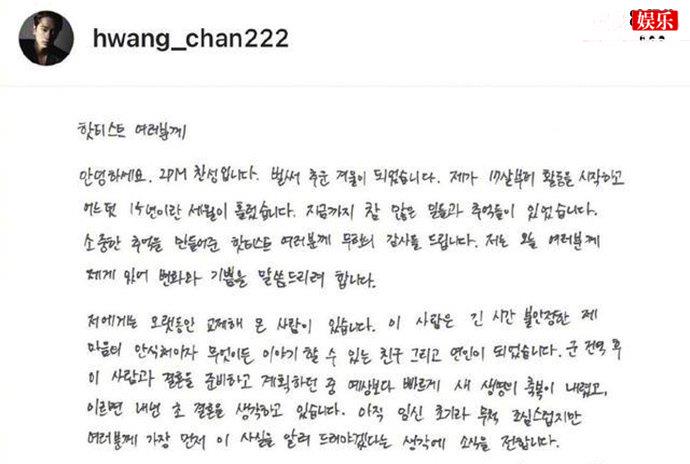 hwang_chan222
娱乐
핫티스트 여러분께
안녕하세요. 2PM 찬성입니다. 벌써 추운 겨울이 되었습니다. 제가 17살부터 활동을 시작하고
어느덧 15년이란 세월이 흘렀습니다. 지금까지 참 많은 일들과 추억들이 있었습니다.
소중한 추억을 만들어준 핫티스트 여러분께 무한의 감사를 드립니다. 저는 오늘 여러분께
제게 있어 변화와 기쁨을 말씀드리려 합니다.
저에게는 오랫동안 교제해 온 사람이 있습니다. 이 사람은 긴 시간 불안정한 제
마음터 안식처이자 무엇이든 이야기 할 수 있는 친구 그리고 연인이 되었습니다. 군 전역 후
이 사람과 결혼을 준비하고 계획하던 중 예상보다 빠르게 새 생명의 축복이 내렸고,
이르면 내년 초 결혼을 생각하고 있습니다. 아직 임신 초기라 무척 조심스럽지만
여러분께 가장 먼저 이 사실을 알려 드려야겠다는 생각에 소식을 전합니다.